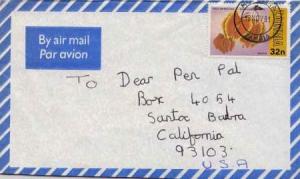 By air mail
Par avion
32n
To Dear Pen Pal
Box 4054
Santa Babra
California
93103.
U.S.A